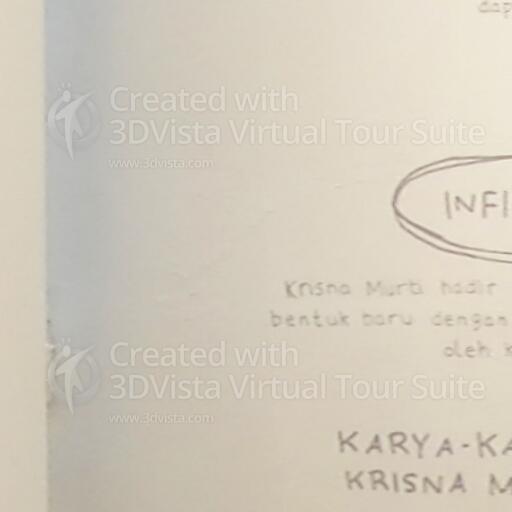 dap
Created with
3DVista Virtual Tour Suite
www.3dvista.com
INFI
Krisna Murti hadir
bentuk baru dengan
oleh K
Created with
3DVista Virtual Tour Suite
www.3dvista.com
KARYA-KA
KRISNA M